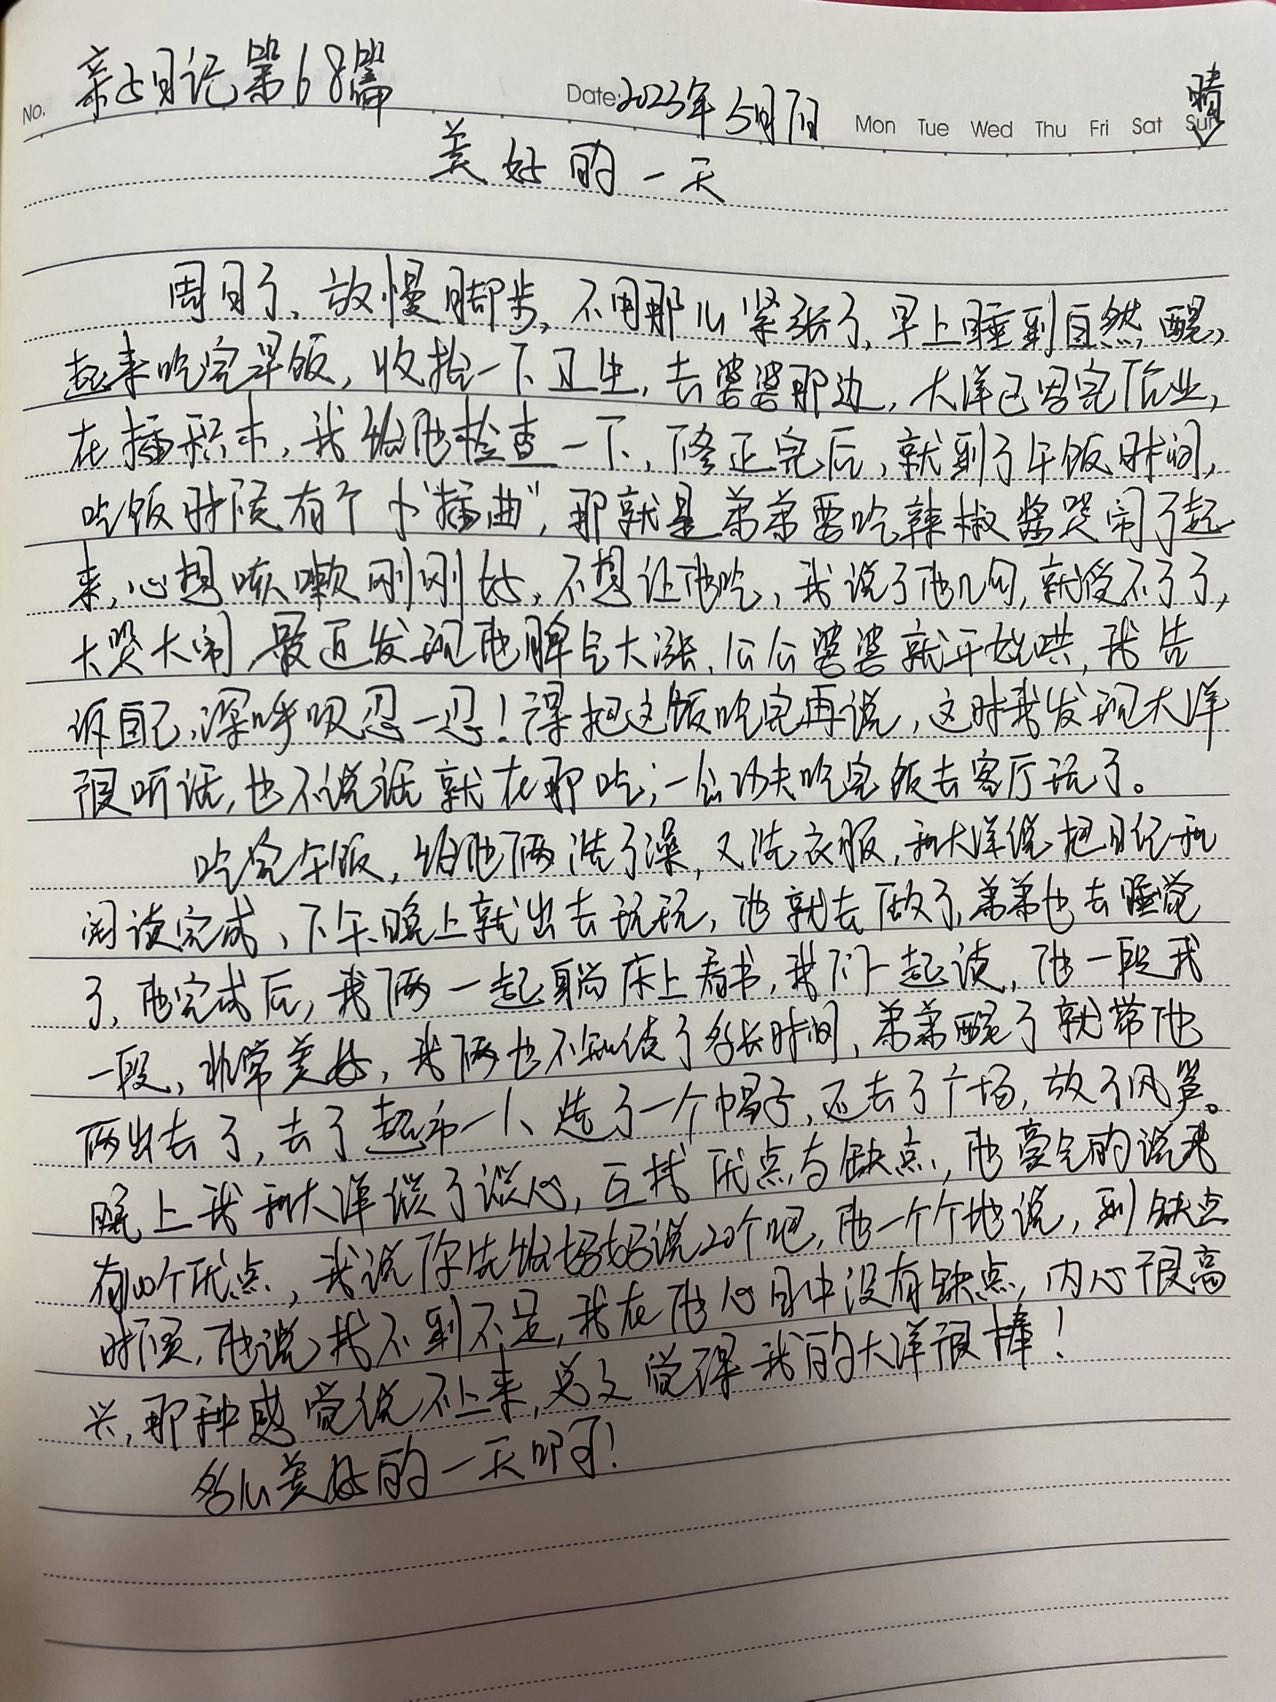 No. 亲子日记第68篇 Date: 2023年5月7日 Mon Tue Wed Thu Fri Sat Sun 晴
美好的一天
周日了、放慢脚步,不用那么紧张了,早上睡到自然醒,
起来吃完早饭,收拾一下卫生,去婆婆那边,大洋已写完作业,
在插积木,我给他检查一下,修正完后,就到了午饭时间,
吃饭时候有个小“插曲”,那就是弟弟要吃辣椒酱哭闹了起
来,心想咳嗽刚刚好,不想让他吃,我说了他几句,就受不了了,
大哭大闹,最近发现他脾气大涨,公公婆婆就开始哄,我告
诉自己,深呼吸忍一忍!得把这饭吃完再说,这时我发现大洋
很听话,也不说话就在那吃;一会功夫吃完饭去客厅玩了。
吃完午饭,给他俩洗了澡,又洗衣服,和大洋说把日记和
阅读完成,下午、晚上就出去玩玩,他就去做了,弟弟也去睡觉
了,他完成后,我俩一起躺床上看书,我们一起读,他一段我
一段,非常美好,我俩也不知读了多长时间,弟弟醒了就带他
俩出去了,去了超市一人选了一个帽子,还去了广场,放了风筝。
晚上我和大洋谈了谈心,互找优点与缺点,他豪气的说我
有100个优点,我说你先给妈妈说20个吧,他一个个地说,到缺点
时候,他说找不到不足,我在他心目中没有缺点,内心很高
兴,那种感觉说不上来,总之觉得我的大洋很棒!
多么美好的一天啊!